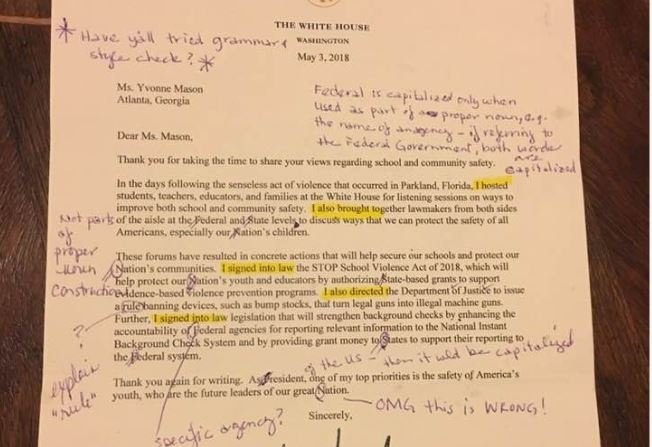 THE WHITE HOUSE
WASHINGTON
May 3, 2018
* Have y'all tried grammar &
style check? *
Ms. Yvonne Mason
Atlanta, Georgia
Federal is capitalized only when
used as part of a proper noun, e.g.
the name of an agency - if referring to
the Federal Government, both words
are
capitalized
Dear Ms. Mason,
Thank you for taking the time to share your views regarding school and community safety.
In the days following the senseless act of violence that occurred in Parkland, Florida, I hosted
students, teachers, educators, and families at the White House for listening sessions on ways to
improve both school and community safety. I also brought together lawmakers from both sides
of the aisle at the Federal and State levels to discuss ways that we can protect the safety of all
Americans, especially our Nation's children.
Not parts
of
proper
noun
construction
These forums have resulted in concrete actions that will help secure our schools and protect our
Nation's communities. I signed into law the STOP School Violence Act of 2018, which will
help protect our Nation's youth and educators by authorizing State-based grants to support
evidence-based violence prevention programs. I also directed the Department of Justice to issue
a rule banning devices, such as bump stocks, that turn legal guns into illegal machine guns.
Further, I signed into law legislation that will strengthen background checks by enhancing the
accountability of Federal agencies for reporting relevant information to the National Instant
Background Check System and by providing grant money to States to support their reporting to
the Federal system.
?
explain
"rule"
of the US - then it would be capitalized
Thank you again for writing. As President, one of my top priorities is the safety of America's
youth, who are the future leaders of our great Nation.
OMG this is WRONG!
Sincerely,
specific agency?